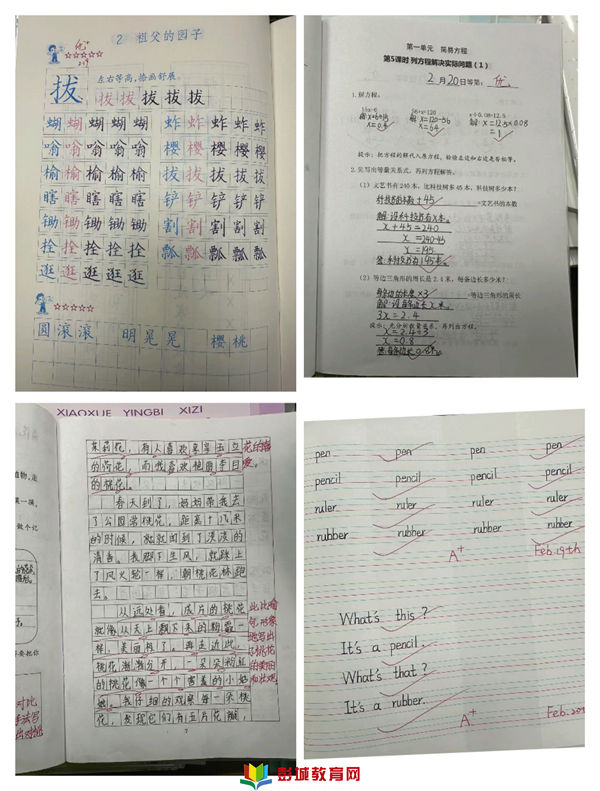 2 祖父的园子
优+
拔
左右等高,撇画舒展。
拔 拔 拔 拔 拔
蝴 蝴 蝴 蝴 蚱 蚱 蚱 蚱 蚱
嗡 嗡 嗡 嗡 樱 樱 樱 樱 樱
榆 榆 榆 榆 拔 拔 拔 拔 拔
瞎 瞎 瞎 瞎 铲 铲 铲 铲 铲
锄 锄 锄 锄 割 割 割 割 割
拴 拴 拴 拴 瓢 瓢 瓢 瓢 瓢
逛 逛 逛 逛
圆 滚 滚 明 晃 晃 樱 桃
第一单元 简易方程
第5课时 列方程解决实际问题(1)
2月20日等第: 优
1.解方程。
56+x=120
x÷0.08=12.5
x=120-56
x=12.5×0.08
x=0.4
x=64
=1
提示:把方程的解代入原方程,检验左边和右边是否相等。
2.先写出等量关系式,再列方程解答。
(1)文艺书有240本,比科技树多45本,科技树多少本?
科技书的本数+45 =文艺书的本数
解:设科技书有x本。
x+45=240
x=240-45
x=195
答:科技书有195本。
(2)等边三角形的周长是2.4米,每条边长多少米?
每条边的长度×3 =等边三角形的周长
解:设每条边长x米。
3x=2.4
提示:先分析数量关系,再列出方程。
x=2.4÷3
x=0.8
答:每条边长0.8米。
XIAOXUE YINGBI XIZI
茉莉花,有人喜欢亭亭玉立
的荷花,而我喜欢艳丽夺目
的桃花。
春天到了,妈妈带我去
了公园赏桃花,距离十几米
的时候,就就闻到了淡淡的
清香。我脚下生风,就踩上
了风火轮一样,朝桃花林跑
去。
从远处看,成片的桃花
就像从天上翻下来的粉霞一
样,美丽极了。再走近些,
桃花渐渐分开,一朵朵粉红
的桃花像一个个害羞的小姑
娘。我仔细的观察每一朵桃
花,发现它们有五片花瓣,
7
pen pen pen pen
pencil pencil pencil pencil
ruler ruler ruler ruler
rubber rubber rubber rubber
A+ Feb.19th
What's this?
It's a pencil.
What's that?
It's a rubber.
A+ Feb.20
彭城教育网